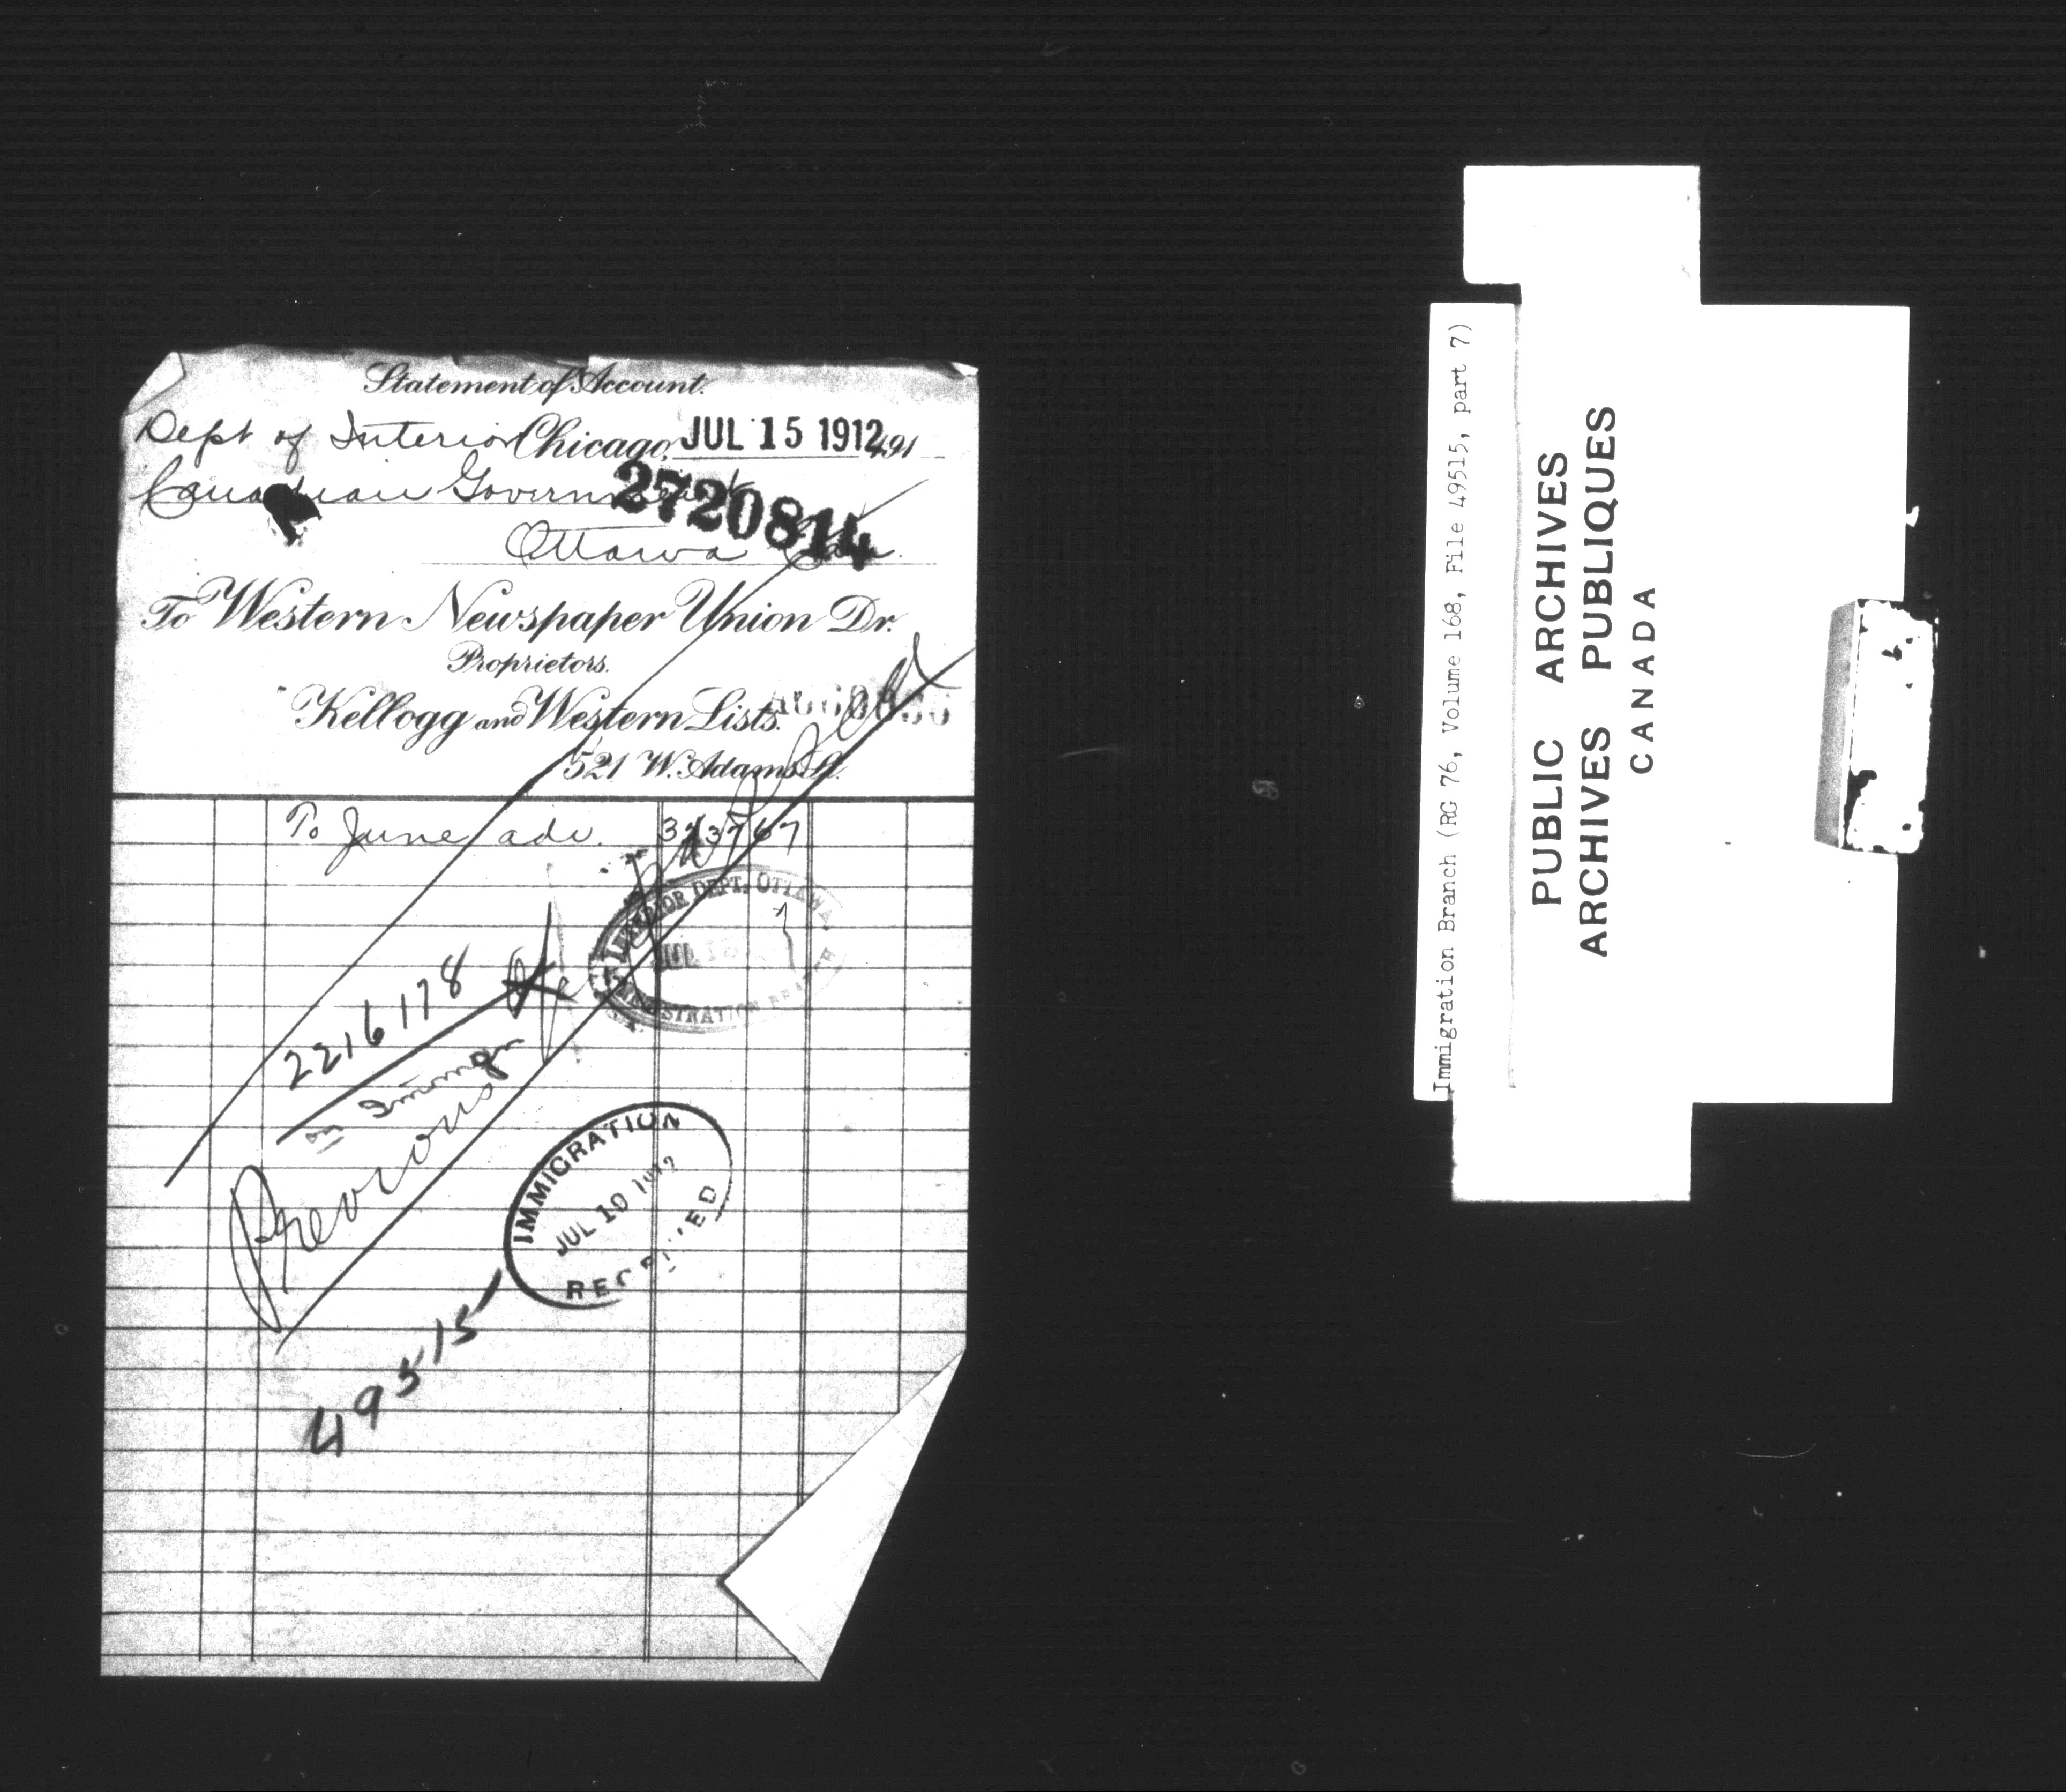 Statement of Account.
Dept of Interior Chicago, JUL 15 1912 191
Canadian Government
2720814
Ottawa Can.
To Western Newspaper Union Dr.
Proprietors.
Kellogg and Western Lists.
521 W. Adams St.
To June adv.
INTERIOR DEPT. OTTAWA
JUL
REGISTRATION BRANCH
2216178
on Immigr
Previous
IMMIGRATION
JUL 19 1912
RECEIVED
49515
Immigration Branch (RG 76, Volume 168, File 49515, part 7)
PUBLIC ARCHIVES
ARCHIVES PUBLIQUES
CANADA